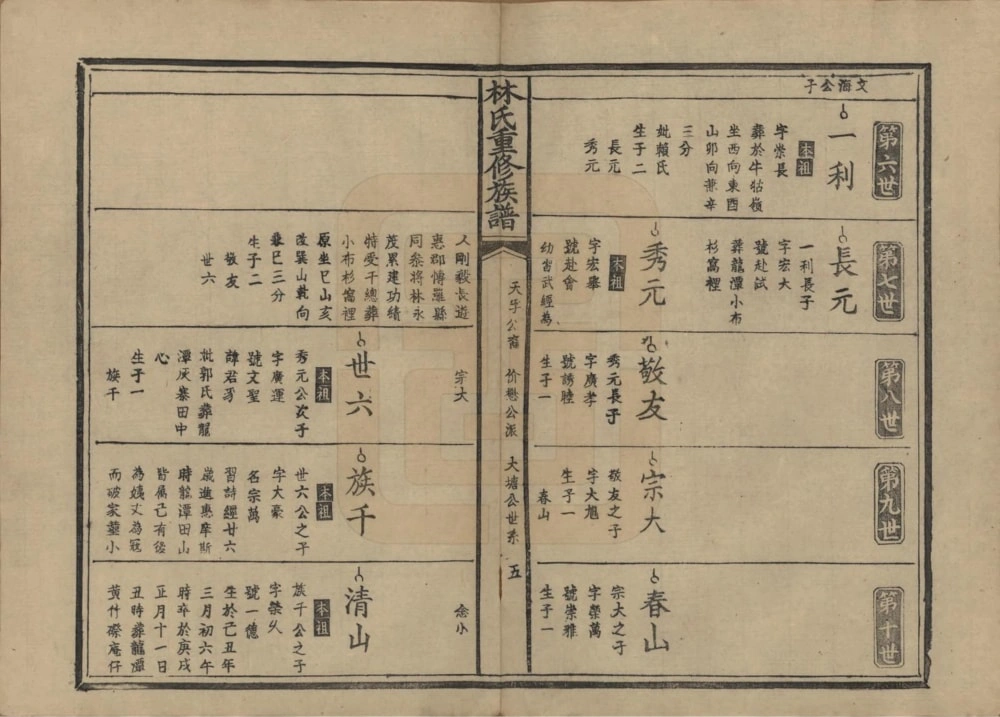 文海公子
第六世
一利
本祖
字崇長
葬於牛牯嶺
坐西向東酉
山卯向兼辛
三分
妣賴氏
生子二
長元
秀元
第七世
長元
一利長子
字宏大
號赴試
葬龍潭小布
杉窩裡
秀元
本祖
字宏
號赴會
幼習武經為
第八世
敬友
秀元長子
字廣孝
號誘睦
生子一
第九世
宗大
敬友之子
字大旭
生子一
春山
第十世
春山
宗大之子
字榮萬
號崇雅
生子一
林氏重修族譜
天孚公裔
价懋公派
大塘公世系
五
人剛毅長遊
惠郡博羅縣
同參將林永
茂累建功績
特受千總葬
小布杉窩裡
原坐巳山亥
改巽山乾向
兼巳三分
生子二
敬友
世六
宗大
世六
本祖
秀元公次子
字廣運
號文聖
諱君
妣郭氏葬龍
潭灰寨田中
心
生子一
族千
族千
本祖
世六公之子
字大豪
名宗萬
習詩經廿六
歲進惠庠斯
時龍潭田山
皆屬己有後
為姨丈為冦
而破家藍小
念小
清山
本祖
族千公之子
字榮乆
號一德
生於己丑年
三月初六午
時卒於庚戌
正月十一日
丑時葬龍潭
黄竹磜庵仔